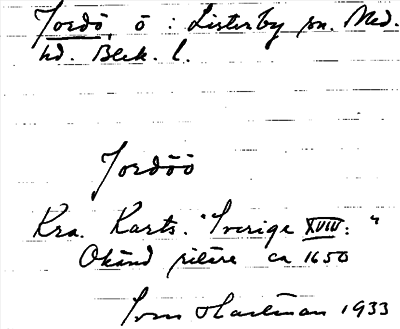 Jordö, ö : Listerby sn. Med.
hd. Blek. l.
Jordöö
Kra. Karts. "Sverige XVIII: "
Okänd ritare ca 1650
Hartman 1933